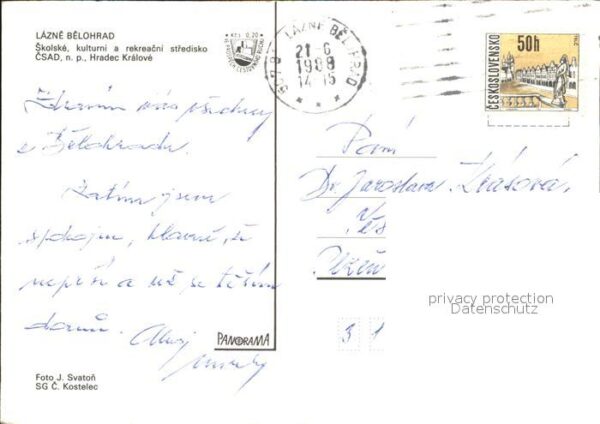 LÁZNĚ BĚLOHRAD
Školské, kulturní a rekreační středisko
ČSAD, n. p., Hradec Králové
Kčs 0,20
LÁZNĚ BĚLOHRAD
21-6
1989
14-15
50h
ČESKOSLOVENSKO
Zdravím vás všechny
z Bělohradu.
Zatím jsem
spokojen, hlavně, že
neprší a už se těším
domů. Ahoj
Paní
Dr. Jaroslava Krásová,
Plzeň
3 1
PANORAMA
privacy protection
Datenschutz
Foto J. Svatoň
SG Č. Kostelec